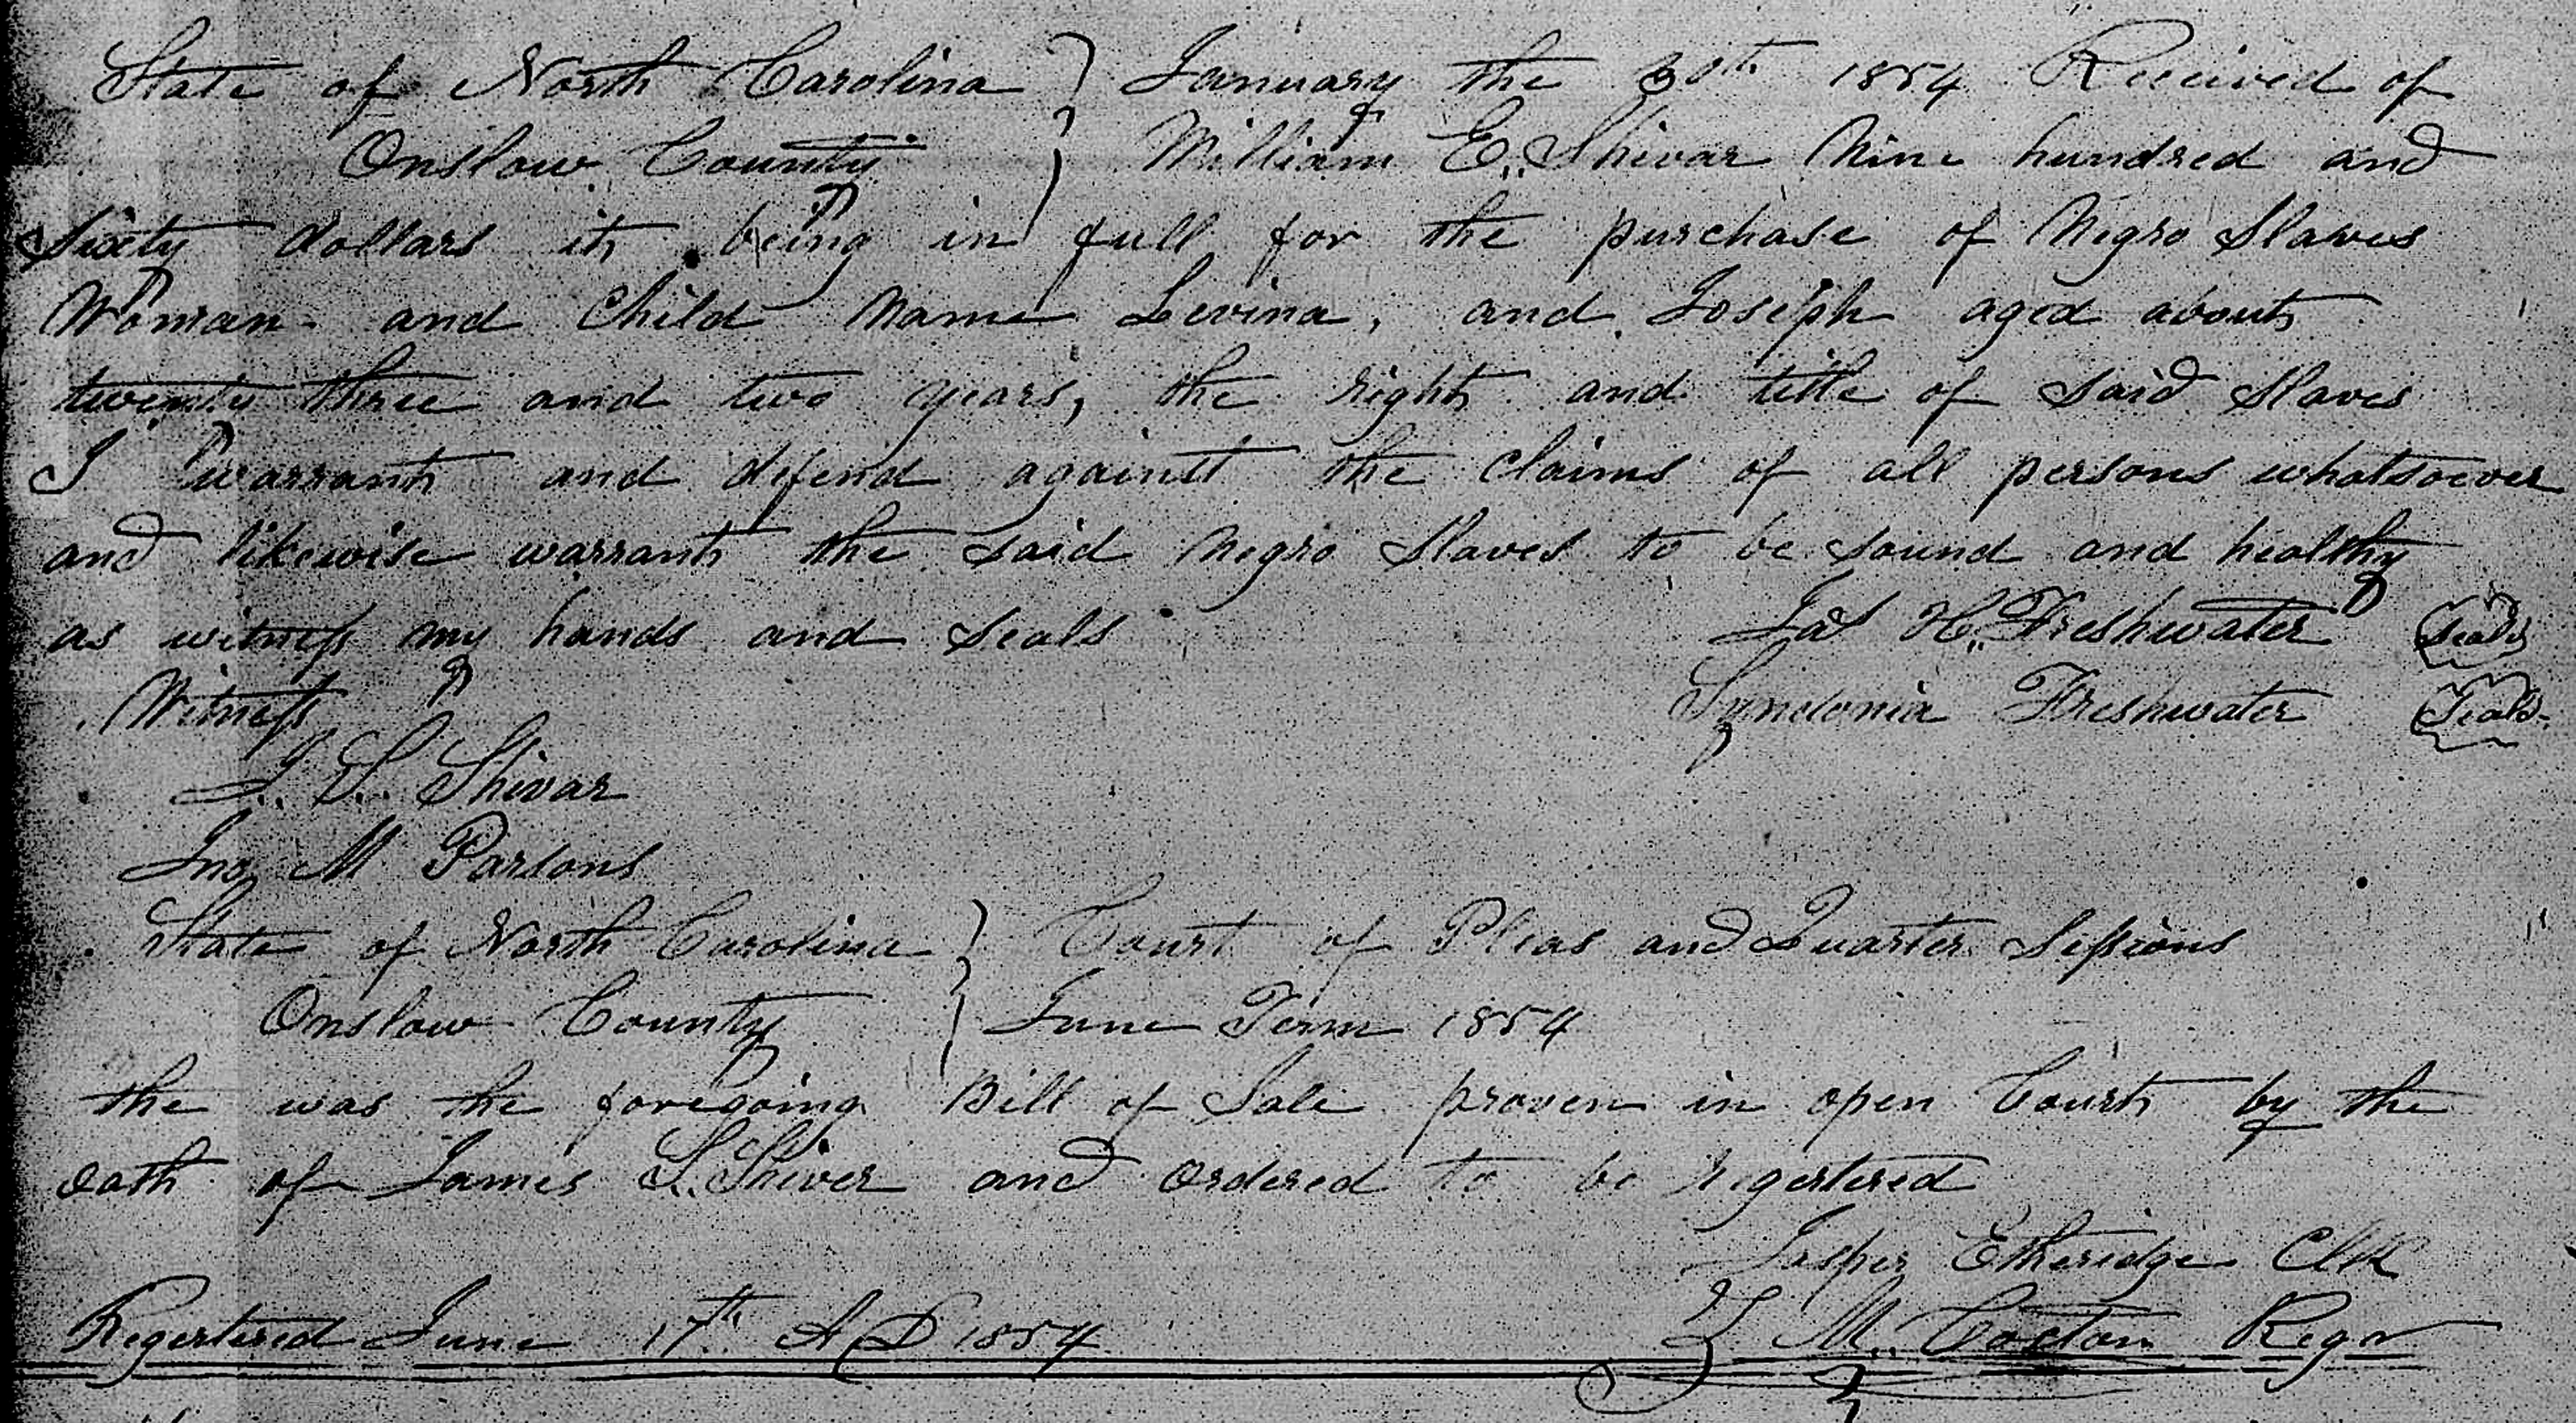 State of North Carolina } January the 30th 1854 Received of
Onslow County } William E. Shivar Nine hundred and
Sixty dollars it being in full for the purchase of Negro Slaves
Woman and Child Name Levina, and Joseph aged about
twenty three and two years, the right and title of said Slaves
I warrant and defend against the claims of all persons whatsoever
and likewise warrant the said Negro Slaves to be sound and healthy
as witness my hands and seals
Jas H. Freshwater (Seal)
Witness
Syndonia Freshwater (Seal)
J. S. Shivar
Jno M Parsons
State of North Carolina } Court of Pleas and Quarter Sessions
Onslow County } June Term 1854
the was the foregoing Bill of Sale proven in open Court by the
oath of James S. Shiver and ordered to be regestered
Jasper Etheridge Clk
Regestered June 17th A D 1854
M. Regr